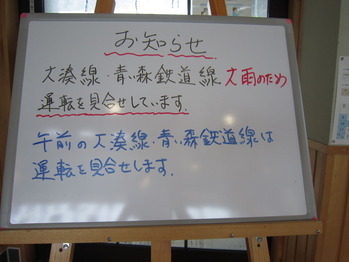 お知らせ
大湊線・青い森鉄道線 大雨のため
運転を見合せしています。
午前の大湊線・青い森鉄道線は
運転を見合せします。